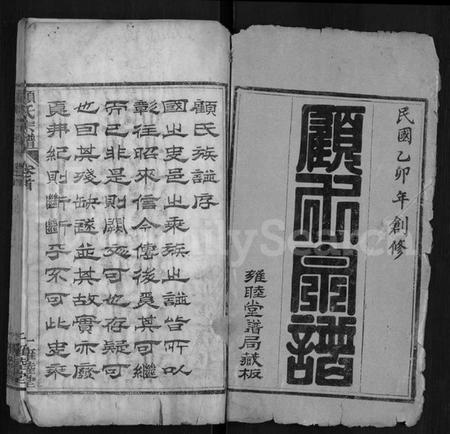 民國乙卯年創修
顧氏宗譜
雍睦堂譜局藏板
顧氏族譜序
國之史邑之乘族之譜皆所以
彰往昭來信今傳後爲其可繼
而已非是則闕死可也存疑可
也因其殘缺遂並其故實亦廢
夏邦紀則斷斷乎不可此史乘
顧氏宗譜
卷首
FamilySearch